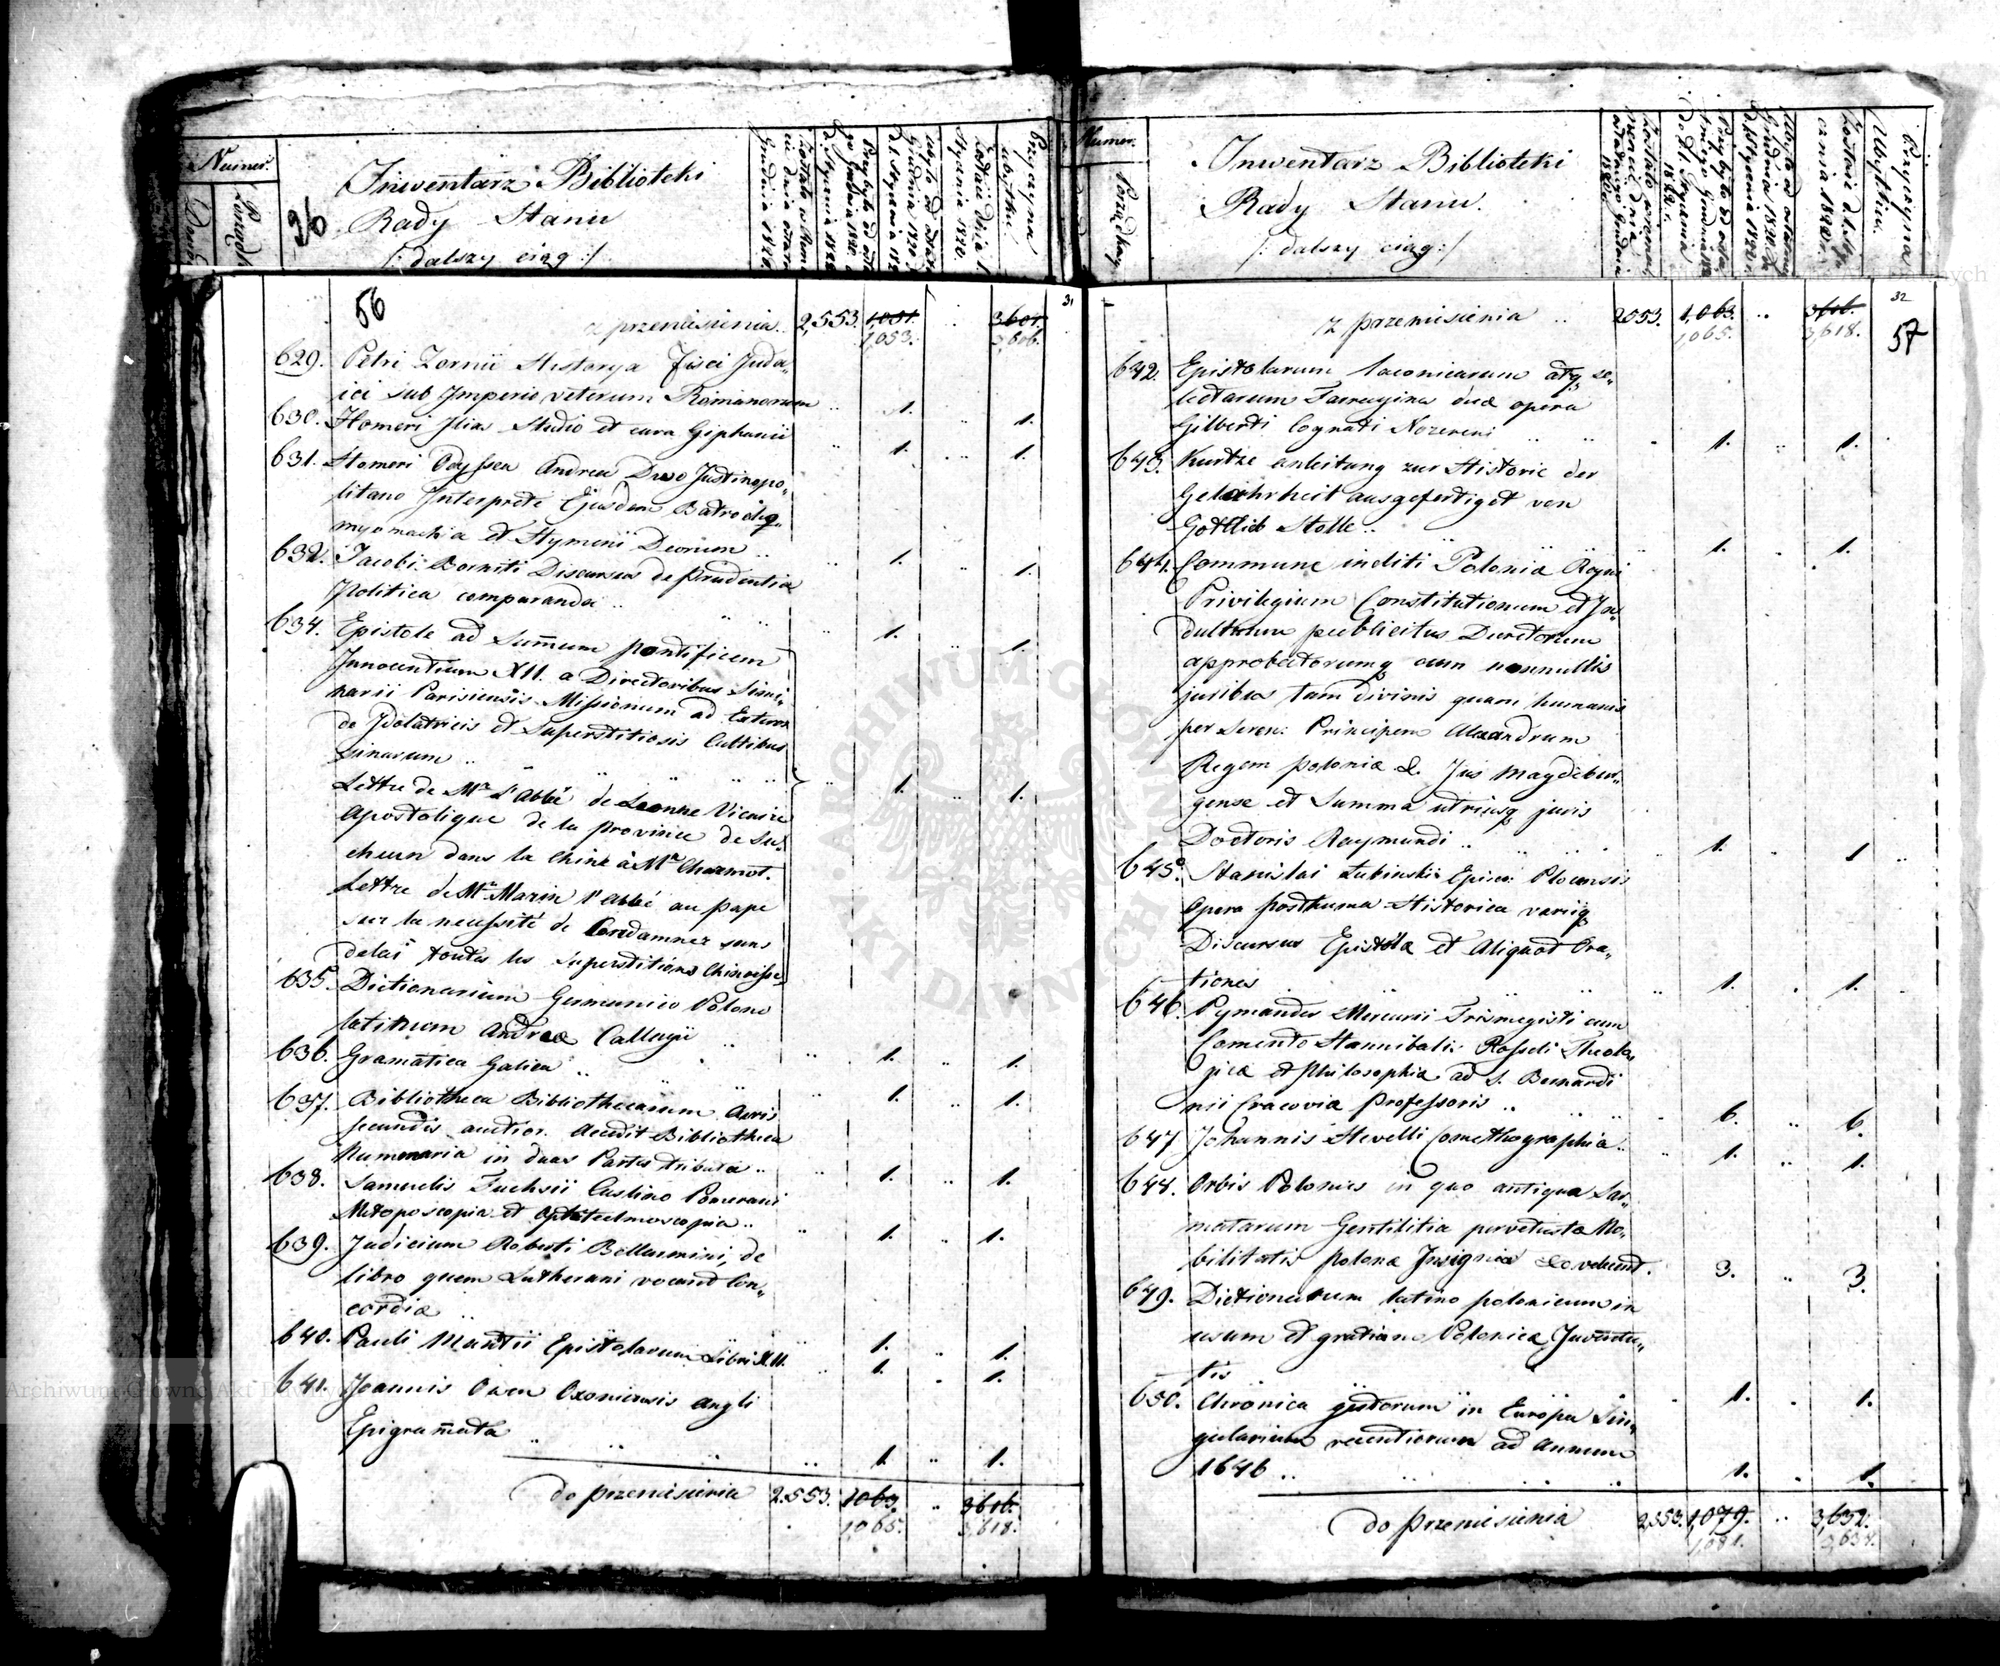 Numer.
Inwentarz Biblioteki
Rady Stanu
/: dalszy ciąg :/
36
56
31
z przeniesienia .. 2,553. 1,051. .. 3604.
1,053. 3,606.
629. Petri Zornii Historya fisci Juda„
ici sub Imperio veterum Romanorum .. 1. 1.
630. Homeri Ilias Studio et cura Giphanii .. 1. .. 1.
631. Homeri Odyssea Andrea Divo Justinopo„
litano Interprete Ejusdem Batrochq„
myomachia et Hymnii Deorum .. .. 1. .. 1.
632. Jacobi Borniti Discursus de prudentia
Politica comparanda .. .. 1. .. 1.
634. Epistole ad Summum pontificem
Innocentium XII. a Directoribus Simi„
narii Parisiensis Missionum ad Exteros
de Idolatricis et Superstitiosis Cultibus
Sinarum .. .. 1. .. 1.
Lettre de Mr l'Abbé de Leonne Vicaire
Apostolique de la province de Su„
chuen dans la Chine à Mr Charmot.
Lettre de Mr Marin l'abbé au pape
sur la necessité de Condamner sans
delai toutes les Superstitions Chinoises
635. Dictionarium Germanico Polono
latinum Andreæ Callagii .. .. 1. .. 1.
636. Gramatica Galica .. .. 1. .. 1.
637. Bibliotheca Bibliothecarum Aeris
secundis auctior. Accedit Bibliotheca
Nummaria in duas Partes tributa .. .. 1. .. 1.
638. Samuelis Fuchsii Cuslino Pomerani
Metoposcopia et Ophtalmoscopia .. .. 1. .. 1.
639. Judicium Roberti Bellarmini, de
libro quem Lutherani vocant Con„
cordiæ .. .. 1. .. 1.
640. Pauli Manutii Epistolarum Libri XII. .. 1. . 1.
641. Joannis Owen Oxoniensis Angli
Epigramata .. .. 1. .. 1.
do przeniesienia 2.553. 1063. .. 3616.
1,065. 3,618.
Numer.
Porządkowy
Inwentarz Biblioteki
Rady Stanu.
/: dalszy ciąg :/
Przyczyna
Ubytku.
32
57
z przeniesienia .. 2553. 1,063. .. 3616.
1,065. 3,618.
642. Epistolarum laconicarum atq se„
lectarum Farragina duæ opera
Gilberti Cognati Nozereni .. .. 1. .. 1.
643. Kurtze anleitung zur Historie der
Gelahrheit ausgefertiget von
Gottlieb Stolle .. .. 1. . 1.
644. Commune incliti Poloniæ Regni
Privilegium Constitutionum et In„
dultuum publicitus Decretorum
approbatorumq cum nonnullis
juribus tam divinis quam humanis
per Seren: Principem Alexandrum
Regem poloniæ &. Jus Magdebur„
gense et Summa utriusq juris
Doctoris Raymundi .. .. 1. . 1 ..
645. Stanislai Lubienskii Episco: Plocensis
Opera posthuma Historica variiq
Discursus Epistolæ et Aliquot Ora„
tiones .. .. 1. . 1.
646. Pymander Mercurii Trismegisti cum
Comento Hannibalis Rosseli Theolo„
gicæ et Philosophiæ ad S. Bernardi
nii Cracoviæ Professoris .. .. 6. .. 6.
647. Johannis Hevelli Comethographia .. 1. .. 1.
644. Orbis Polonus in quo antiqua Sar„
matarum Gentilitia pervetusta No„
bilitatis polonæ Insignia &c vehunt. 3. .. 3.
649. Dictionarum latino polonicum in
usum et gratiam Polonica Juventu„
tis .. 1. . 1.
650. Chronica gestorum in Europa Sin„
gularium recentiorum ad Annum
1646 .. .. 1. . 1.
do przeniesienia 2,553. 1079. .. 3,632.
1,081. 3,634.
ARCHIWUM GŁÓWNE AKT DAWNYCH